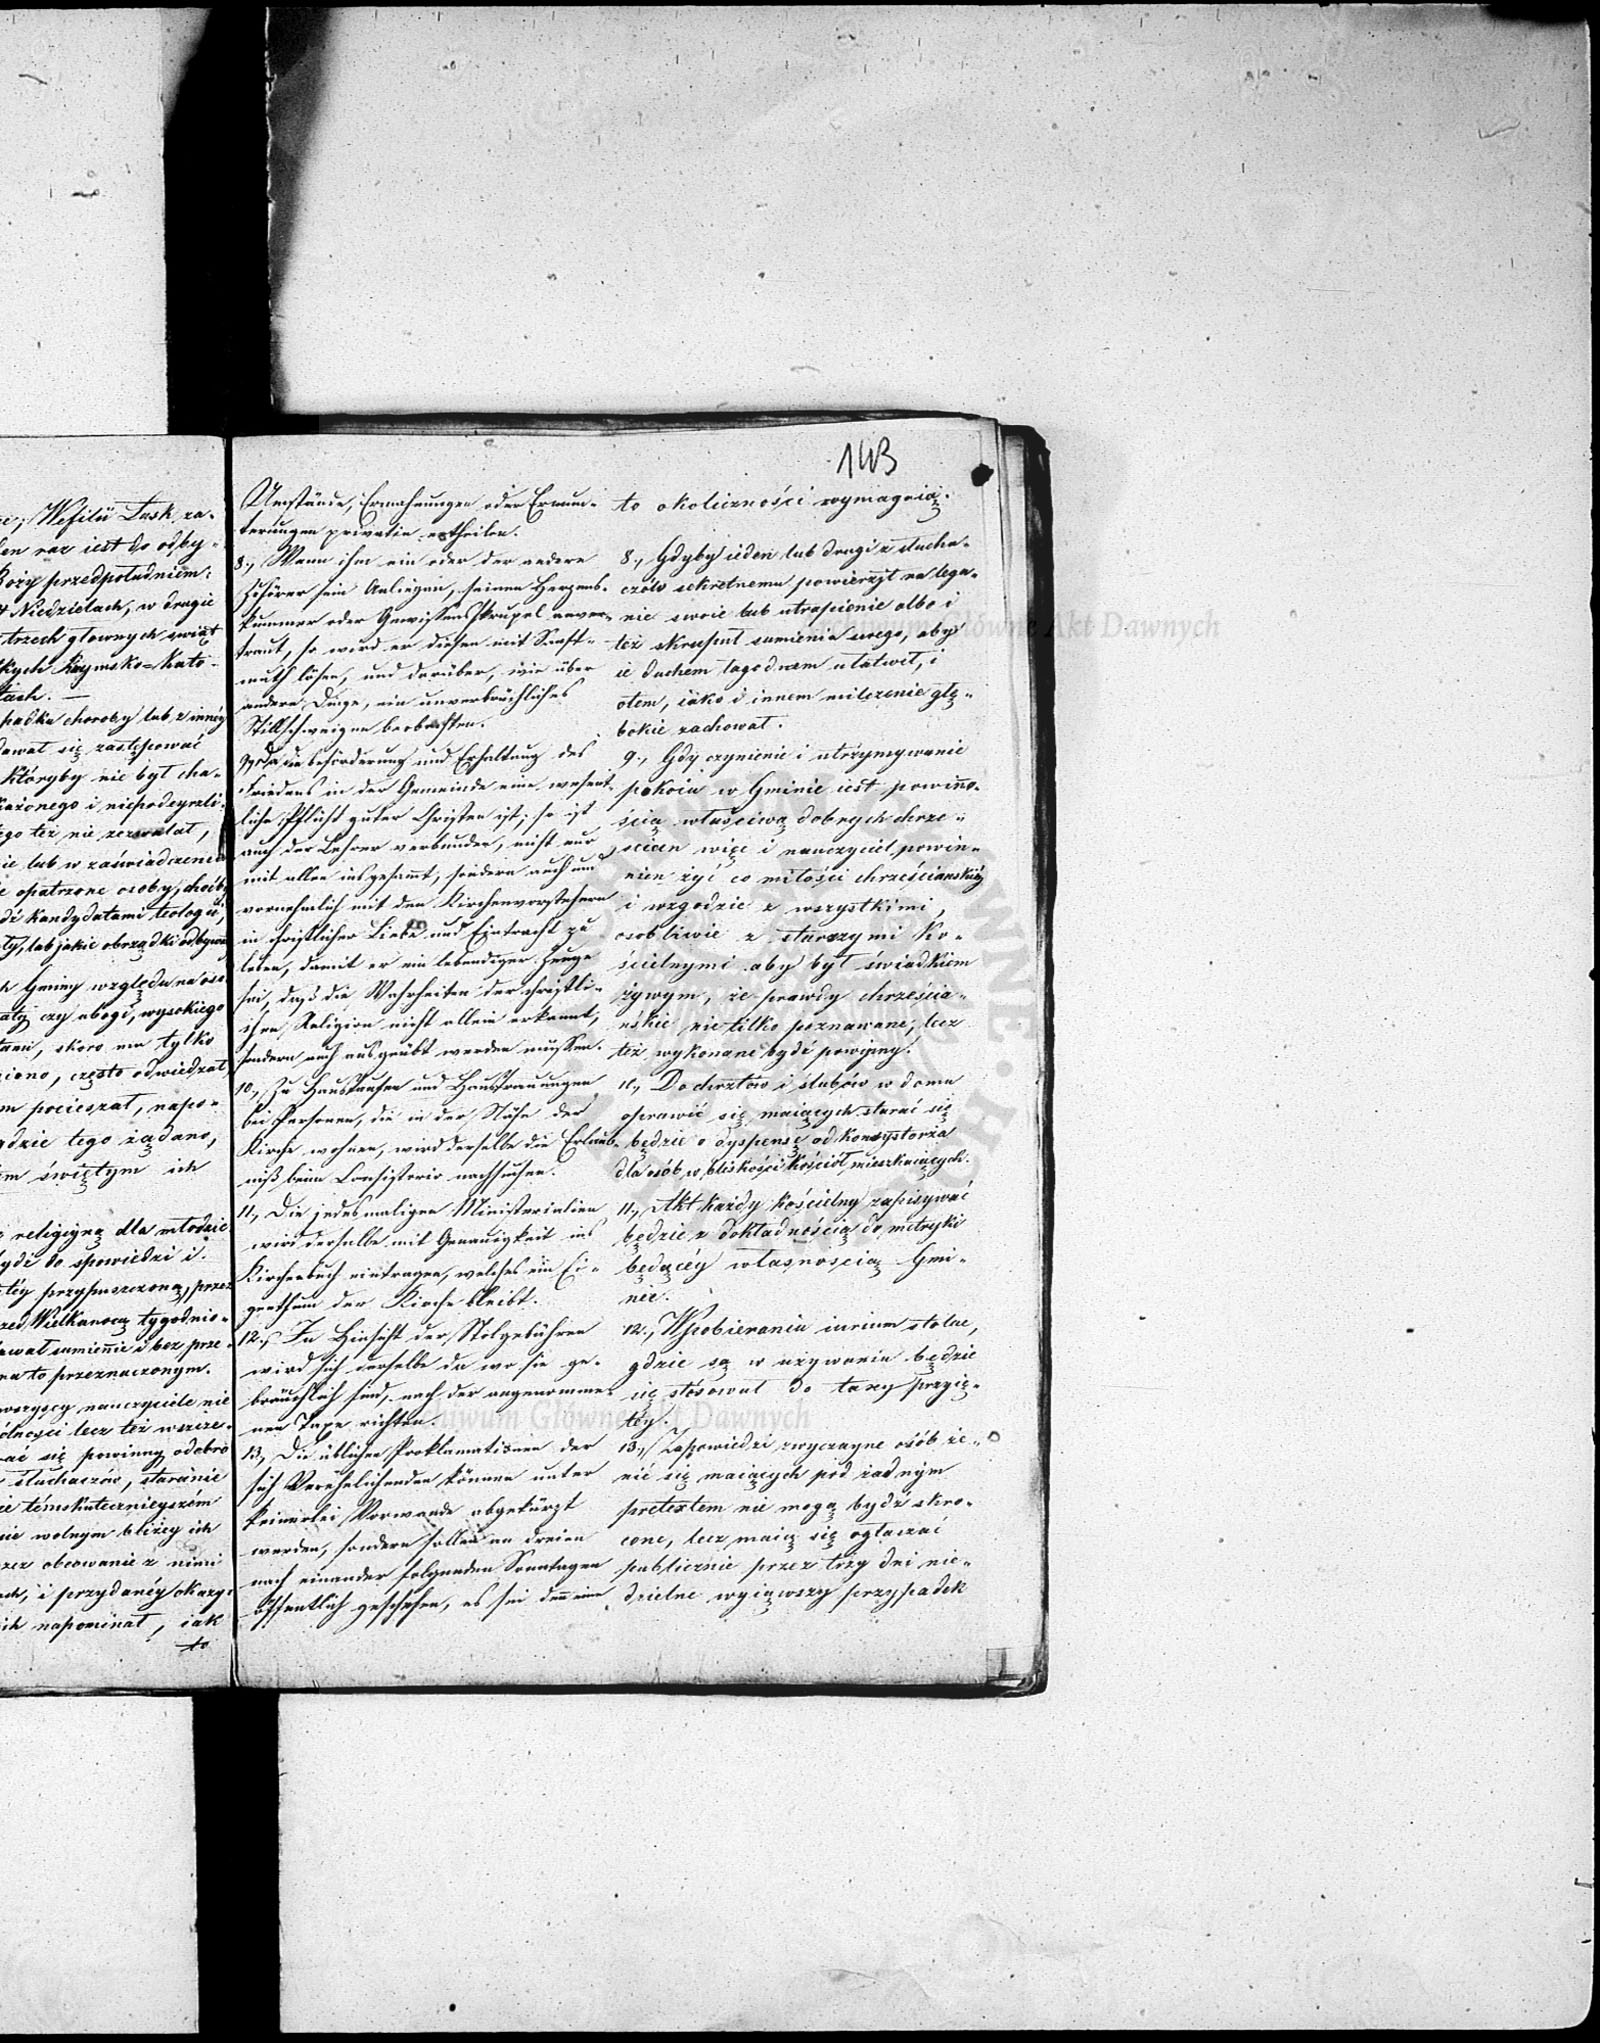 143
re; Wefilii Lask, za-
den raz iest do odby-
Boży przedpołudniem:
4 Niedzielach, w drugie
trzech głownych świąt
skych Rzymsko=Kato-
tach. —
padku choroby lub z innéy
dawał się zastępować
któryby nie był cha-
każonego i niepodeyrzli-
ego też nie zezwalał,
ie lub w zaświadczenia
ie opatrzone osoby, choćby
dź kandydatami teologii,
ty, lub jakie obrządki odbywa
h Gminy względu na oso-
aty czy ubogi, wysokiego
tanu, skoro mu tylko
iono, często odwiedzał,
m pocieszał, napo-
gdzie tego żądano,
em świętym ich
religiyną dla młodzie
bydź do spowiedzi i
téy przypuszczoną, przez
zed Wielkanocą tygodnio-
dawał sumiennie i bez prze-
na to przeznaczonym.
wszyscy nauczyciele nie
ólności lecz też wszcze-
ać się powinny odebrá
słuchaczów, staránie
ie témskuteczniejszém
sie wolnym bliżey ich
zez obcowanie z nimi
ch, i przydanéy okazy-
ich napominał, iak
to
Umstände, Ermahnungen oder Ermun-
terungen privatim ertheilen.
8., Wenn ihm ein oder der andere
Zuhörer sein Anliegen, seinen Herzens-
kummer oder Gewissensskrupel anver-
traut, so wird er diesen mit Sanft-
muth lösen, und darüber, wie über
andere Dinge, ein unverbrüchliches
Stillschweigen beobachten.
9., Da die Beförderung und Erhaltung des
Friedens in der Gemeinde eine wesent-
liche Pflicht guter Christen ist; so ist
auch der Lehrer verbunden, nicht nur
mit allen insgesamt, sondern auch und
vornehmlich mit den Kirchenvorstehern
in christlicher Liebe und Eintracht zu
leben, damit er ein lebendiger Zeuge
sei, daß die Wahrheiten der christli-
chen Religion nicht allein erkannt,
sondern auch ausgeübt werden müssen.
10., Zu Haustaufen und Haustrauungen
bei Personen, die in der Nähe der
Kirche wohnen, wird derselbe die Erlaub-
niß beim Consistorio nachsuchen.
11., Die jedesmaligen Ministerialien
wird derselbe mit Genauigkeit ins
Kirchenbuch eintragen, welches ein Ei-
genthum der Kirche bleibt.
12., In Hinsicht der Stolgebühren
wird sich derselbe da wo sie ge-
bräuchlich sind, nach der angenomme-
nen Taxe richten.
13., Die üblichen Proklamationen der
sich Verehelichenden können unter
keinerlei Vorwande abgekürzt
werden, sondern sollen an dreien
nach einander folgenden Sonntagen
öffentlich geschehen, es sei denn ein
to okoliczności wymagaią.
8., Gdyby ieden lub drugi z słucha-
czów sekretnemu powierzył na lega-
nie swoie lub utrapienie albo i
też skrupuł sumienia swego, aby
ie duchem łagodnem ułatwił, i
otem, iáko i innem milczenie głę-
bokie zachował.
9., Gdy czynienie i utrzymywanie
pokoiu w Gminie iest powinno-
ścią właściwą dobrych chrze-
ścian więc i nauczyciel powin-
nien żyć co miłości chrześcianskiéy
i wzgodzie z wszystkimi,
osobliwie z starszymi Ko-
ścielnymi aby był świadkiem
żywym, że prawdy chrześcia-
ńskie nietilko poznawane, lecz
też wykonane bydź powinny.
10., Dochrztów i ślubów w domu
oprawić się maiących starać się
będzie o dyspensę od konsystorża
dla osób w bliskości kościół mieszkaiących.
11., Akt każdy kościelny zapisywać
będzie z dokładnością do metryki
będącéy własnoscią Gmi-
nie.
12., Wpobieraniu iurium stolae,
gdzie są w używaniu będzie
się stósował do taxy przyię-
téy.
13., Zapowiedzi zwyczayne osób że-
nić się maiących pod żadnym
pretextem nie mogą bydź skro-
cone, lecz maią się ogłaszać
publicznie przez trży dni nie-
dzielne wyiąwszy przypadek
Archiwum Główne Akt Dawnych
Archiwum Główne Akt Dawnych